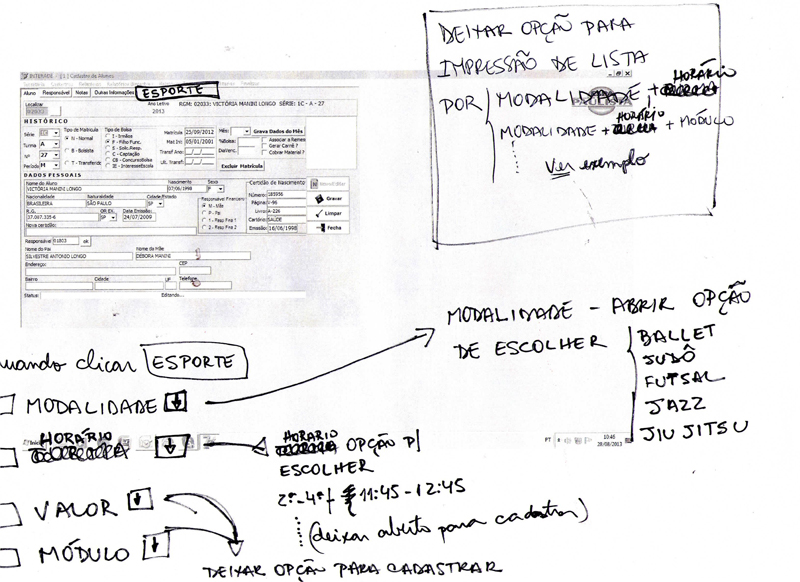 DEIXAR OPÇÃO PARA
IMPRESSÃO DE LISTA
POR MODALIDADE + HORÁRIO
MODALIDADE + HORÁRIO + MÓDULO
Ver exemplo
[1] Cadastro de Alunos
Aluno Responsável Notas Outras Informações ESPORTE
Localizar
Ano Letivo
2013
RGM: 02033: VICTÓRIA MANINI LONGO SÉRIE: 1C - A - 27
HISTÓRICO
Série
Turma A
Nº 27
Período M
Tipo de Matrícula
N - Normal
B - Bolsista
T - Transferido
Tipo de Bolsa
I - Irmãos
F - Filho Func.
S - Solic.Resp.
C - Captação
CB - ConcursoBolsa
IE - InteresseEscola
Matrícula 25/09/2012
Mat Int: 05/01/2001
Transf Ano:
Ult. Transf:
Mês:
%Bolsa:
DiaVenc.
Grava Dados do Mês
Gerar Carnê ?
Cobrar Material ?
Excluir Matrícula
DADOS PESSOAIS
Nome do Aluno
VICTÓRIA MANINI LONGO
Nascimento
07/06/1998
Sexo
F
Nacionalidade
BRASILEIRA
Naturalidade
SÃO PAULO
Cidade/Estado
SP
R.G.
37.007.335-6
OR EX.
SP
Data Emissão:
24/07/2009
Nova certidão:
Responsável Financeiro
M - Mãe
P - Pai
1 - Resp Fina 1
2 - Resp Fina 2
Certidão de Nascimento
Número: 185956
Página:
Livro: A-226
Cartório: SAUDE
Emissão: 16/06/1998
Gravar
Limpar
Fecha
Responsável 01803 ok
Nome do Pai
SILVESTRE ANTONIO LONGO
Nome da Mãe
DEBORA MANINI
Endereço:
CEP
Bairro
Cidade
UF
Telefone
Status:
Editando...
MODALIDADE - ABRIR OPÇÃO
DE ESCOLHER
BALLET
JUDÔ
FUTSAL
JAZZ
JIU JITSU
uando clicar ESPORTE
MODALIDADE
HORÁRIO
VALOR
MÓDULO
HORARIO OPÇÃO P/
ESCOLHER
2ª-4ª f 11:45-12:45
(deixar aberto para cadastrar)
DEIXAR OPÇÃO PARA CADASTRAR
PT
10:46
28/08/2013